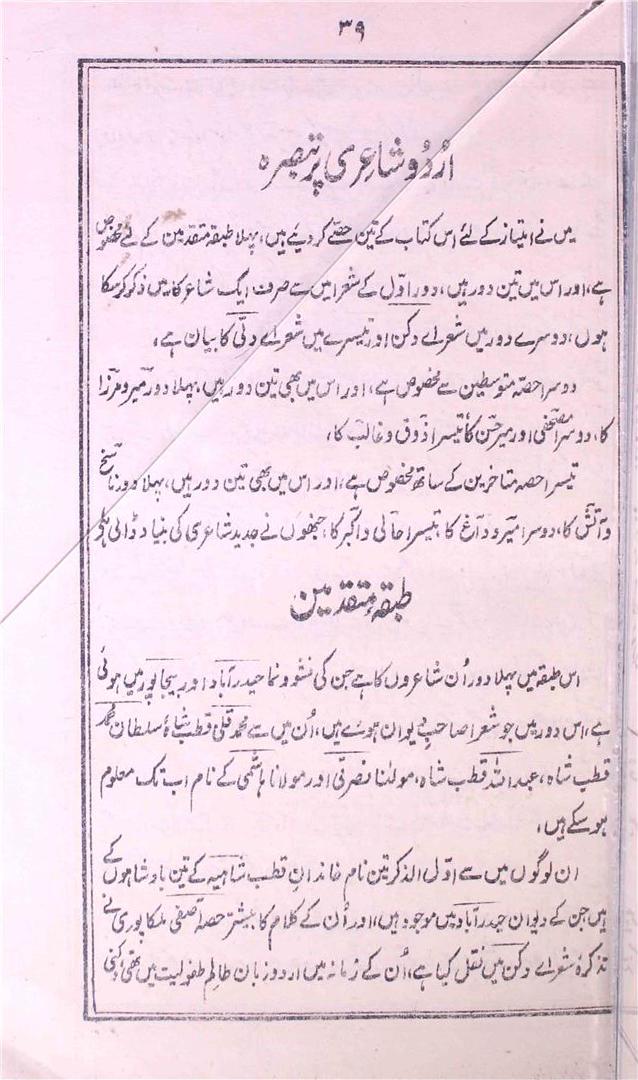 ۳۹
اُردُو شاعری پر تبصرہ
میں نے امتیاز کے لئے اس کتاب کے تین حصے کردیے ہیں، پہلا طبقہ متقدمین کے لیے مخصوص
ہے، اور اس میں تین دور ہیں، دور اوّل کے شعرا میں سے صرف ایک شاعر کا میں ذکر کرسکا
ہوں، دوسرے دور میں شعراے دکن اور تیسرے میں شعراے دلّی کا بیان ہے،
دوسرا حصّہ متوسطین سے مخصوص ہے، اور اس میں بھی تین دور ہیں، پہلا دور میر و مرزا
کا، دوسرا مصحفی اور میر حسن کا تیسرا ذوق و غالب کا،
تیسرا حصہ متاخرین کے ساتھ مخصوص ہے، اور اس میں بھی تین دور ہیں، پہلا دور ناسخ
و آتش کا، دوسرا امیر و داغ کا، تیسرا حالی و اکبر کا، جنھوں نے جدید شاعری کی بنیاد ڈالی ہے
طبقۂ متقدمین
اس طبقہ میں پہلا دور اُن شاعروں کا ہے جن کی نشوونما حیدرآباد اور بیجاپور میں ہوئی
ہے، اس دور میں جو شعرا صاحبِ دیوان ہوے ہیں، اُن میں سے محمد قلی قطب شاہ سلطان محمد
قطب شاہ، عبداللہ قطب شاہ، مولٰنا نصرتی اور مولانا ہاشمی کے نام اب تک معلوم
ہوسکے ہیں،
ان لوگوں میں سے اوّل الذکر تین نام خاندان قطب شاہیہ کے تین بادشاہوں کے
ہیں جن کے دیوان حیدرآباد میں موجود ہیں، اور اُن کے کلام کا بیشتر حصہ آصفی ملکاپوری نے
تذکرۂ شعراے دکن میں نقل کیا ہے، اُن کے زمانہ میں اردو زبان عالمِ طفولیت میں تھی، کنی